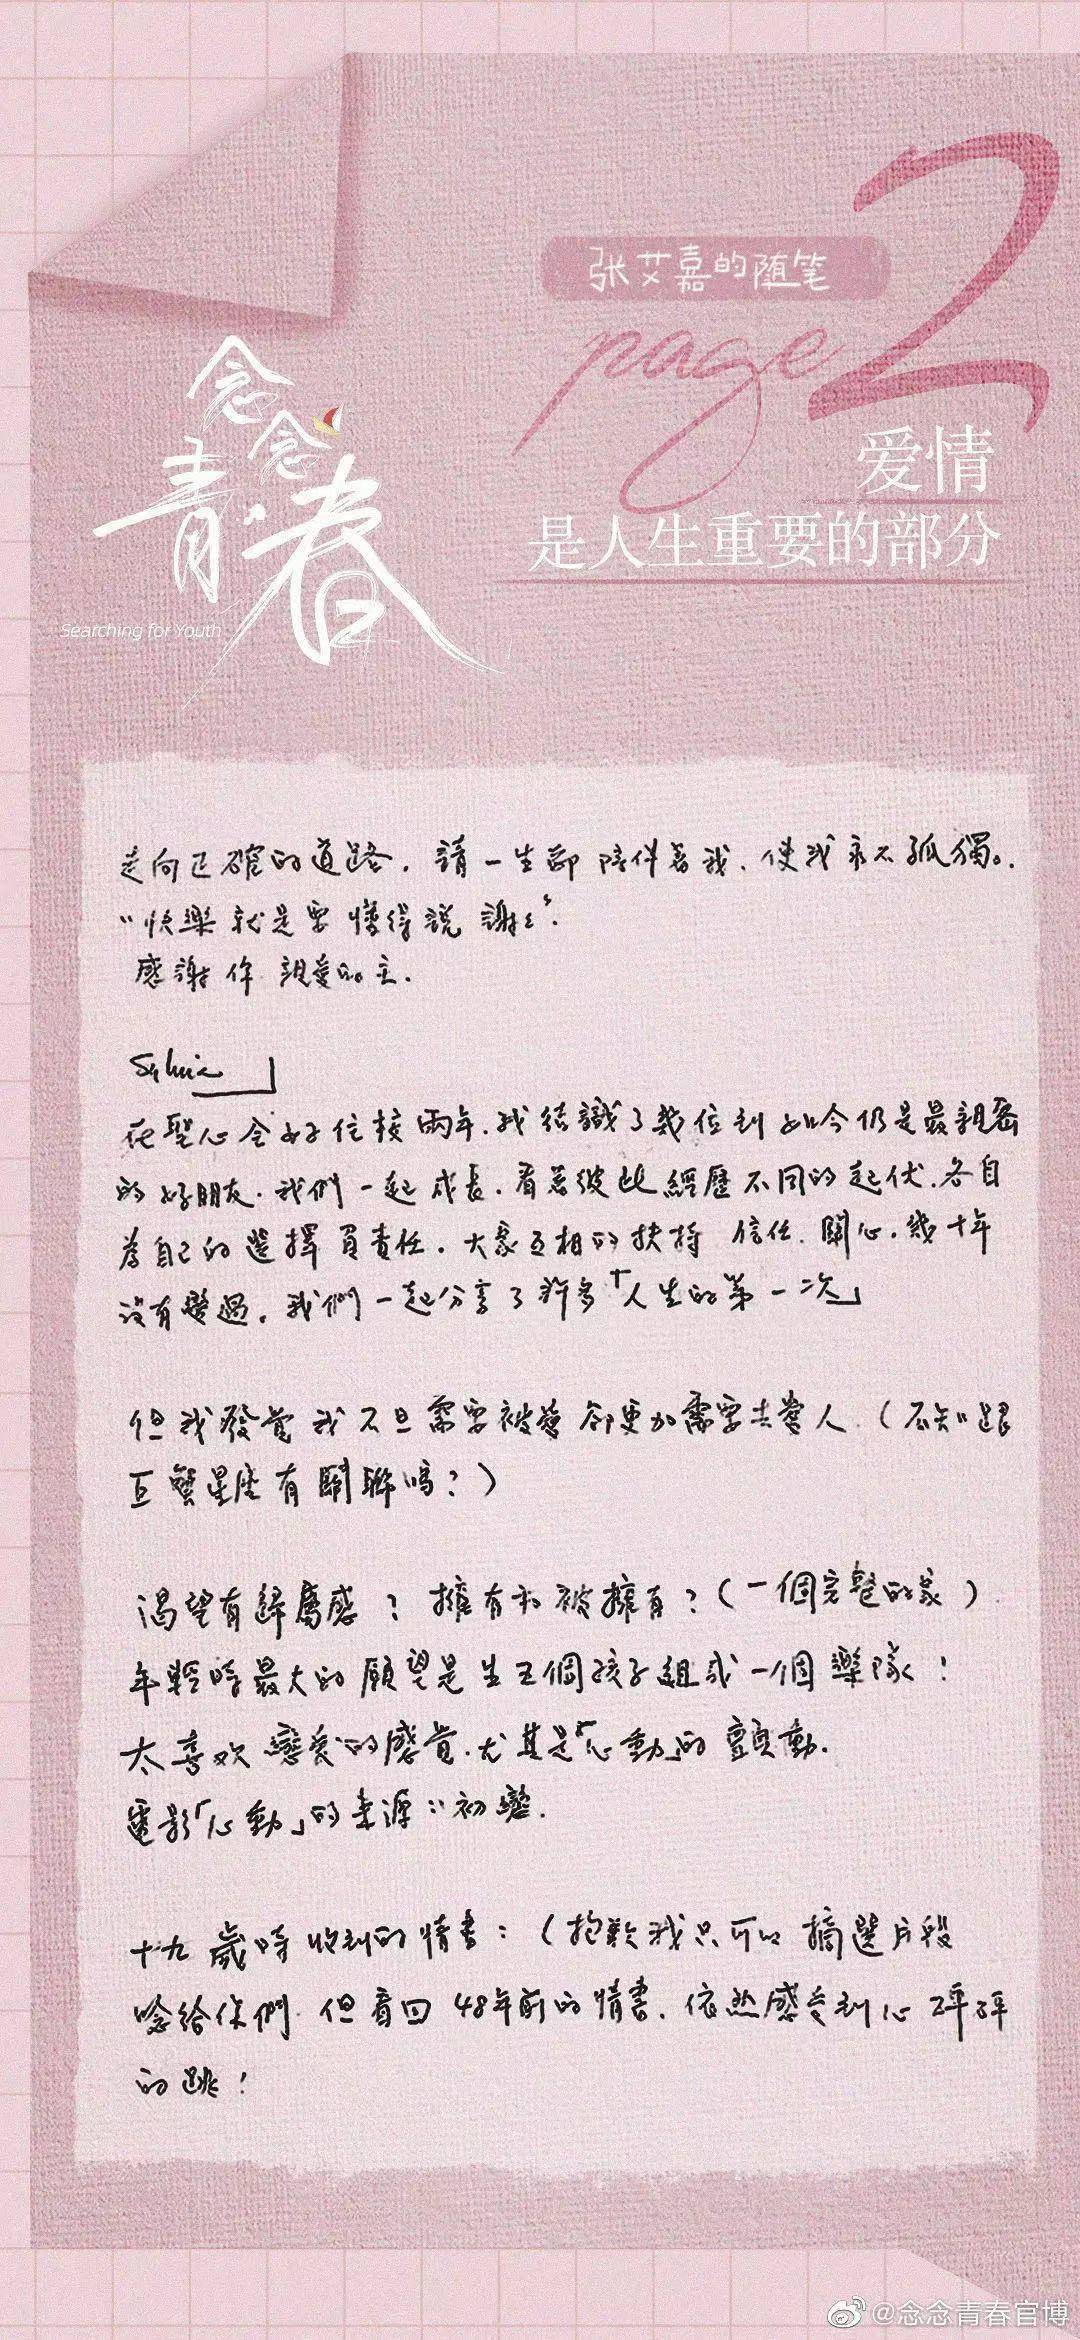 张艾嘉的随笔
page 2
念念青春
Searching for Youth
爱情
是人生重要的部分
走向正確的道路，請一生都陪伴著我，使我永不孤獨。
“快樂就是要懂得說謝謝”.
感謝你 親愛的主.
Sylvia
在聖心全女子住校兩年，我結識了幾位到如今仍是最親密
的好朋友．我們一起成長，看着彼此經歷不同的起伏，各自
為自己的選擇負責任，大家互相的扶持 信任．關心．幾十年
沒有變過。我們一起分享了許多「人生的第一次」
但我發覺我不但需要被愛 卻更加需要去愛人（不知跟
巨蟹星座有關聯嗎？）
渴望有歸屬感？擁有和被擁有？（一個完整的家）
年輕時最大的願望是生五個孩子組成一個樂隊！
太喜欢戀爱的感覺．尤其是「心動」的顫動．
電影「心動」的來源：初戀．
十九歲時收到的情書：（抱歉我只可以摘選片段
唸給你們 但看回48年前的情書．依然感受到心砰砰
的跳！
@念念青春官博